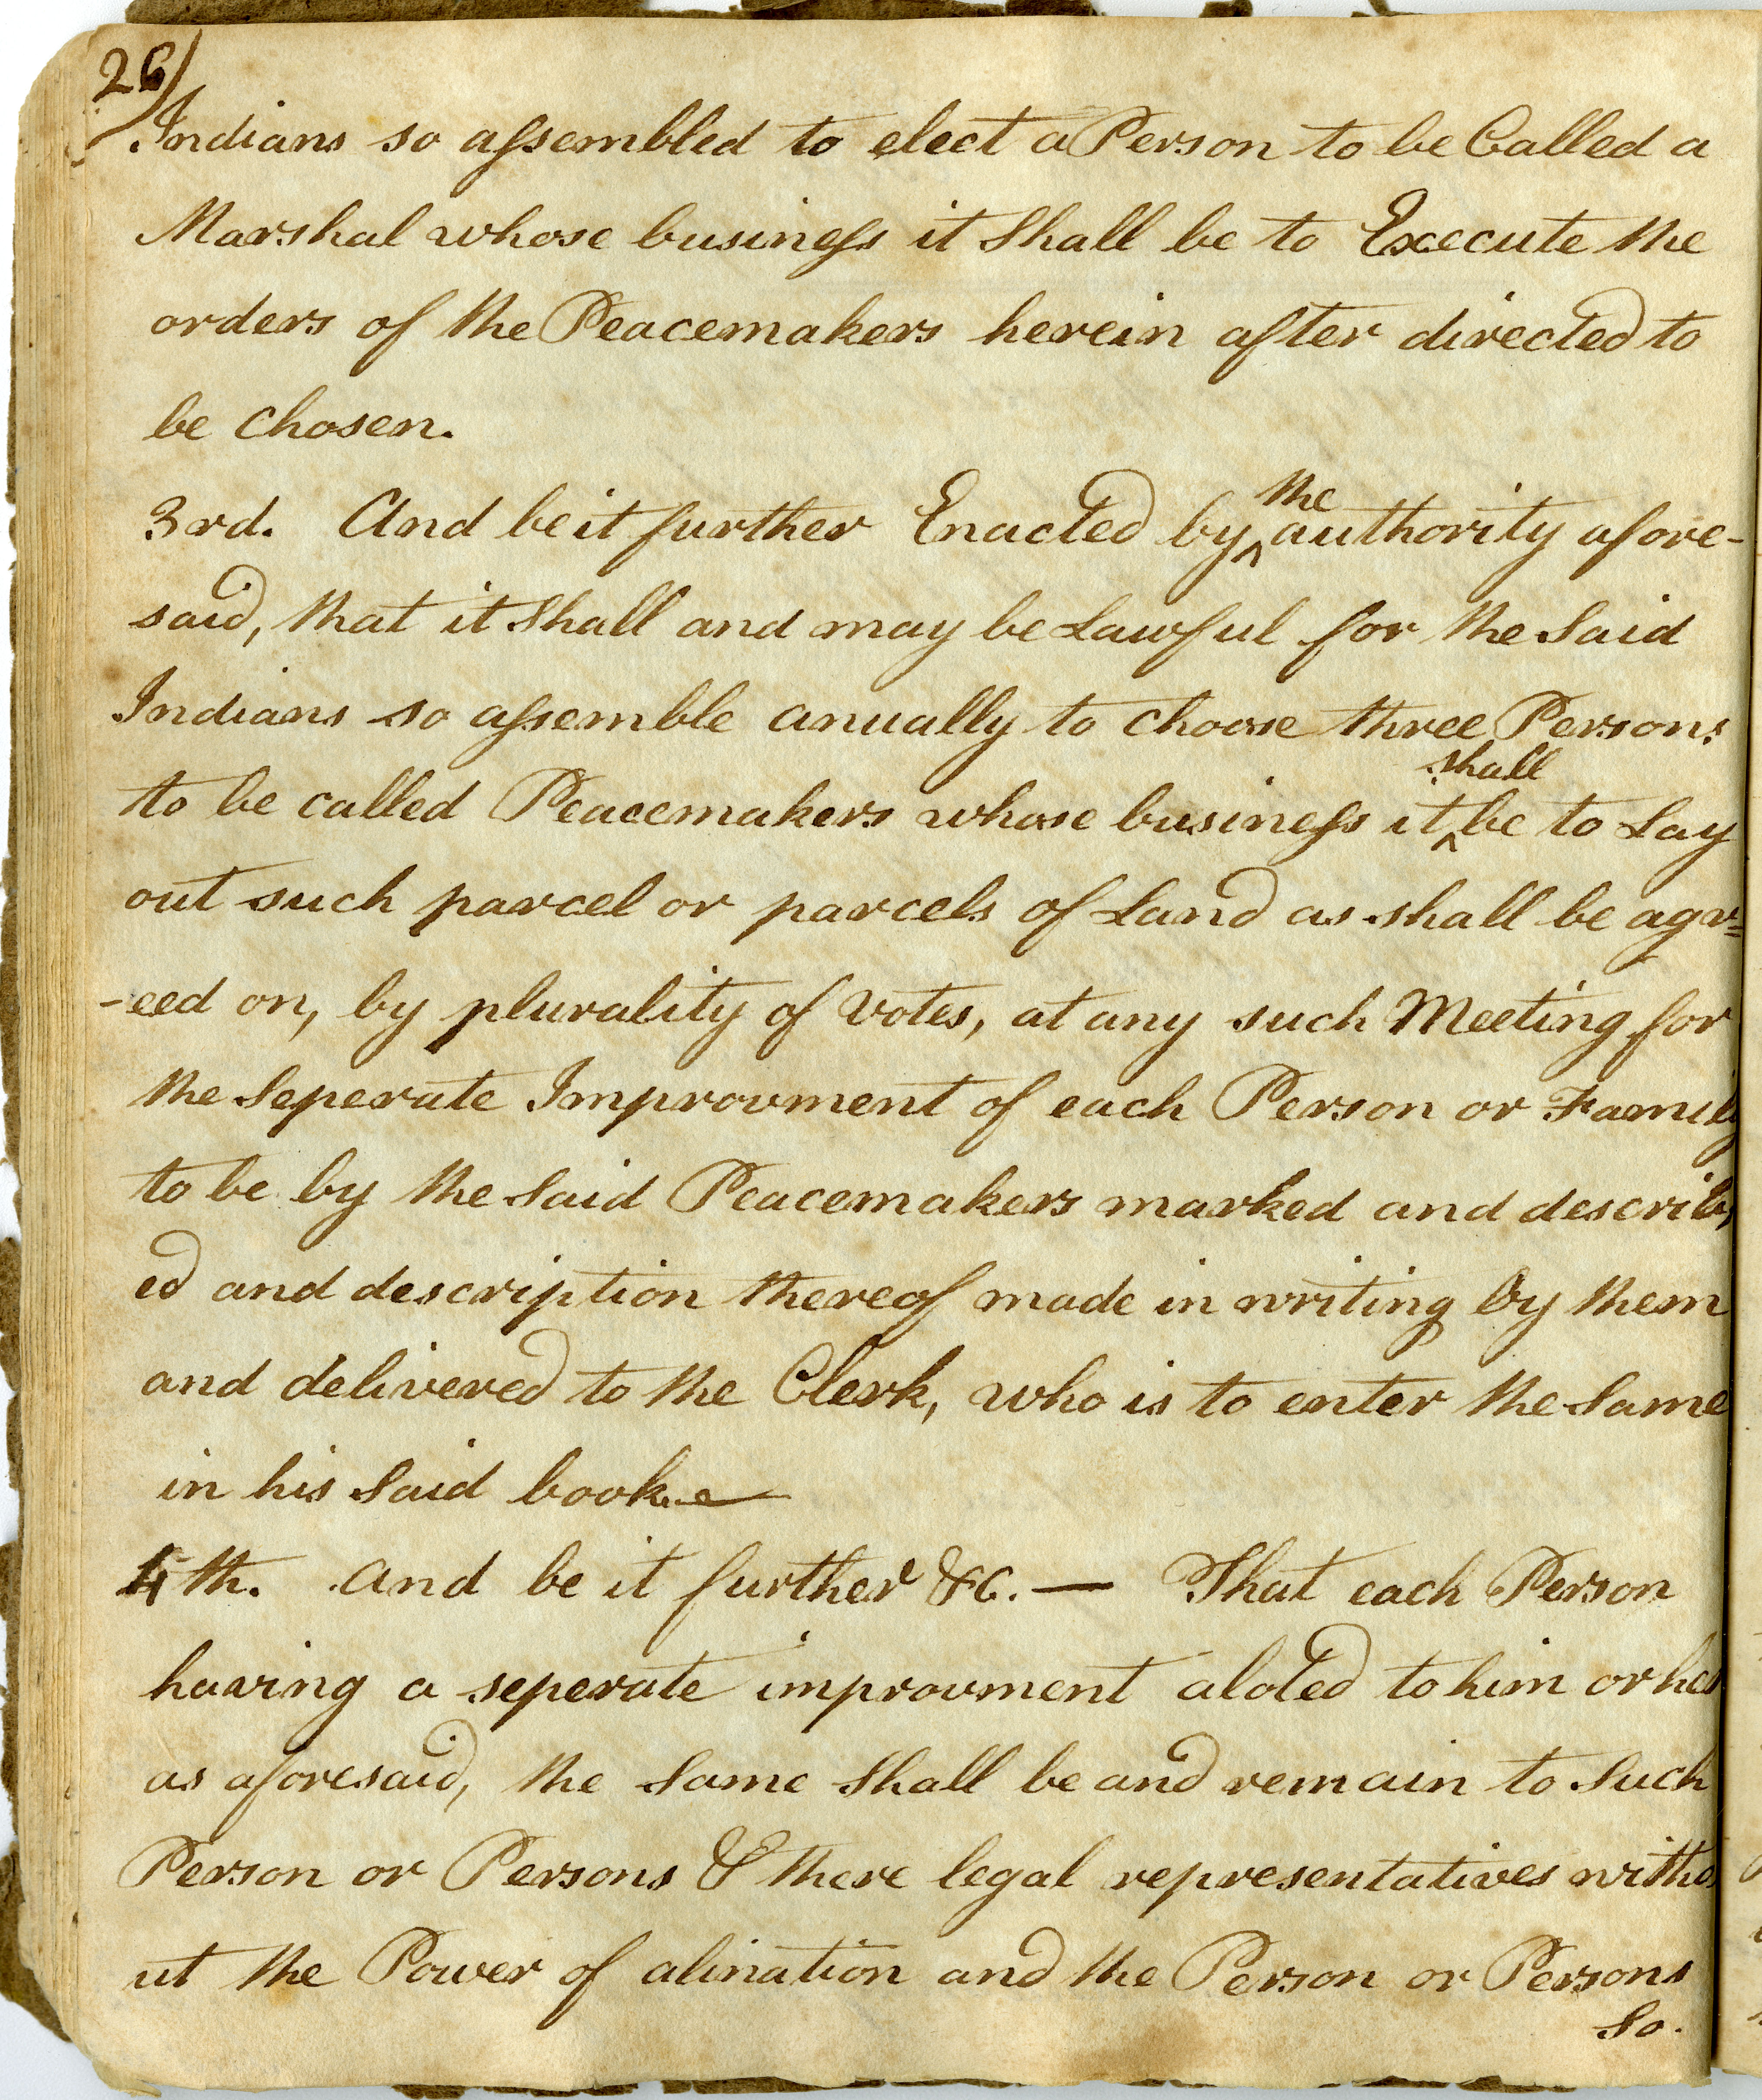 26)
Indians so assembled to elect a Person to be Called a
Marshal whose business it Shall be to Execute the
orders of the Peacemakers herein after directed to
be Chosen.
3rd. And be it further Enacted by ^the authority afore-
said, that it Shall and may be Lawful for the Said
Indians so assemble anually to choose three Persons
to be called Peacemakers whose business it ^shall be to Lay
out such parcel or parcels of Land as shall be agr=
-eed on, by plurality of votes, at any such Meeting for
the Seperate Improvment of each Person or Family
to be by the Said Peacemakers marked and describ,
ed and description thereof made in writing by them
and delivered to the Clerk, who is to enter the Same
in his Said book.
4th. And be it further &c. — That each Person
having a seperate improvment aloted to him or her
as aforesaid, the Same Shall be and remain to Such
Person or Persons & there legal representatives witho
ut the Power of alination and the Person or Persons
So.